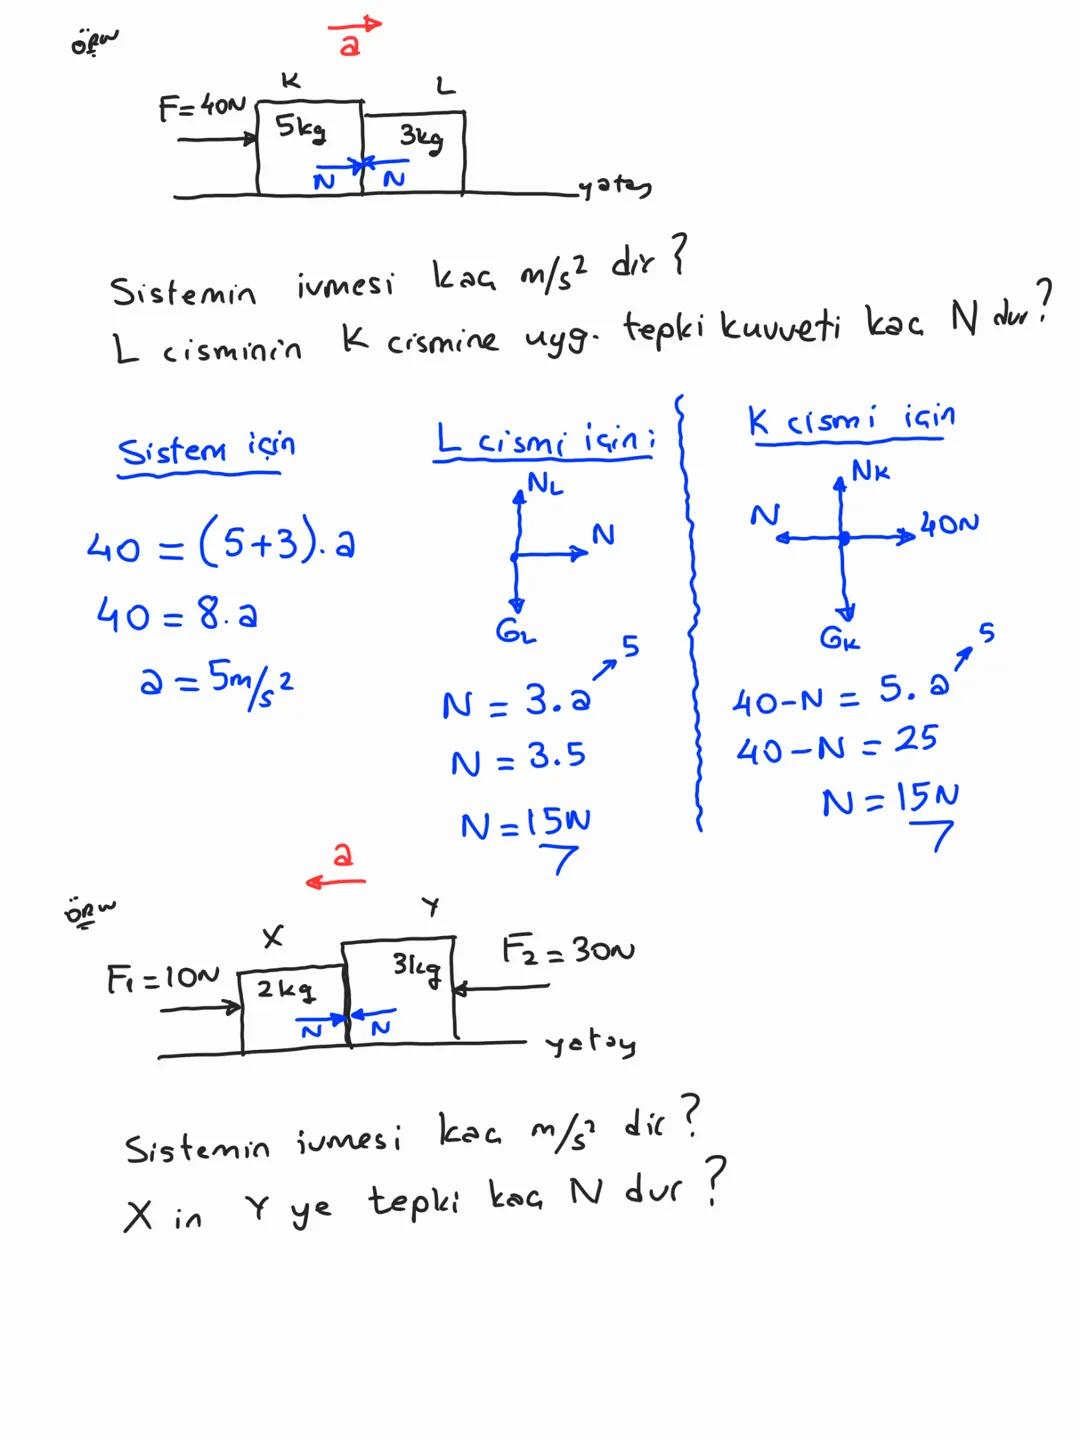 ÖRN
a
K
L
F=40N
5kg
3kg
N
N
yatay
Sistemin ivmesi kaç m/s² dir?
L cisminin K cismine uyg. tepki kuvveti kaç N dur?
Sistem için
40 = (5+3).a
40 = 8.a
a = 5m/s²
L cismi için:
NL
N
GL
5
N = 3.a
N = 3.5
N = 15N
K cismi için
NK
N
40N
GK
5
40-N = 5.a
40-N = 25
N = 15N
ÖRN
a
X
Y
F1=10N
2kg
3kg
F2=30N
N
N
yatay
Sistemin ivmesi kaç m/s² dir?
X in Y ye tepki kaç N dur?